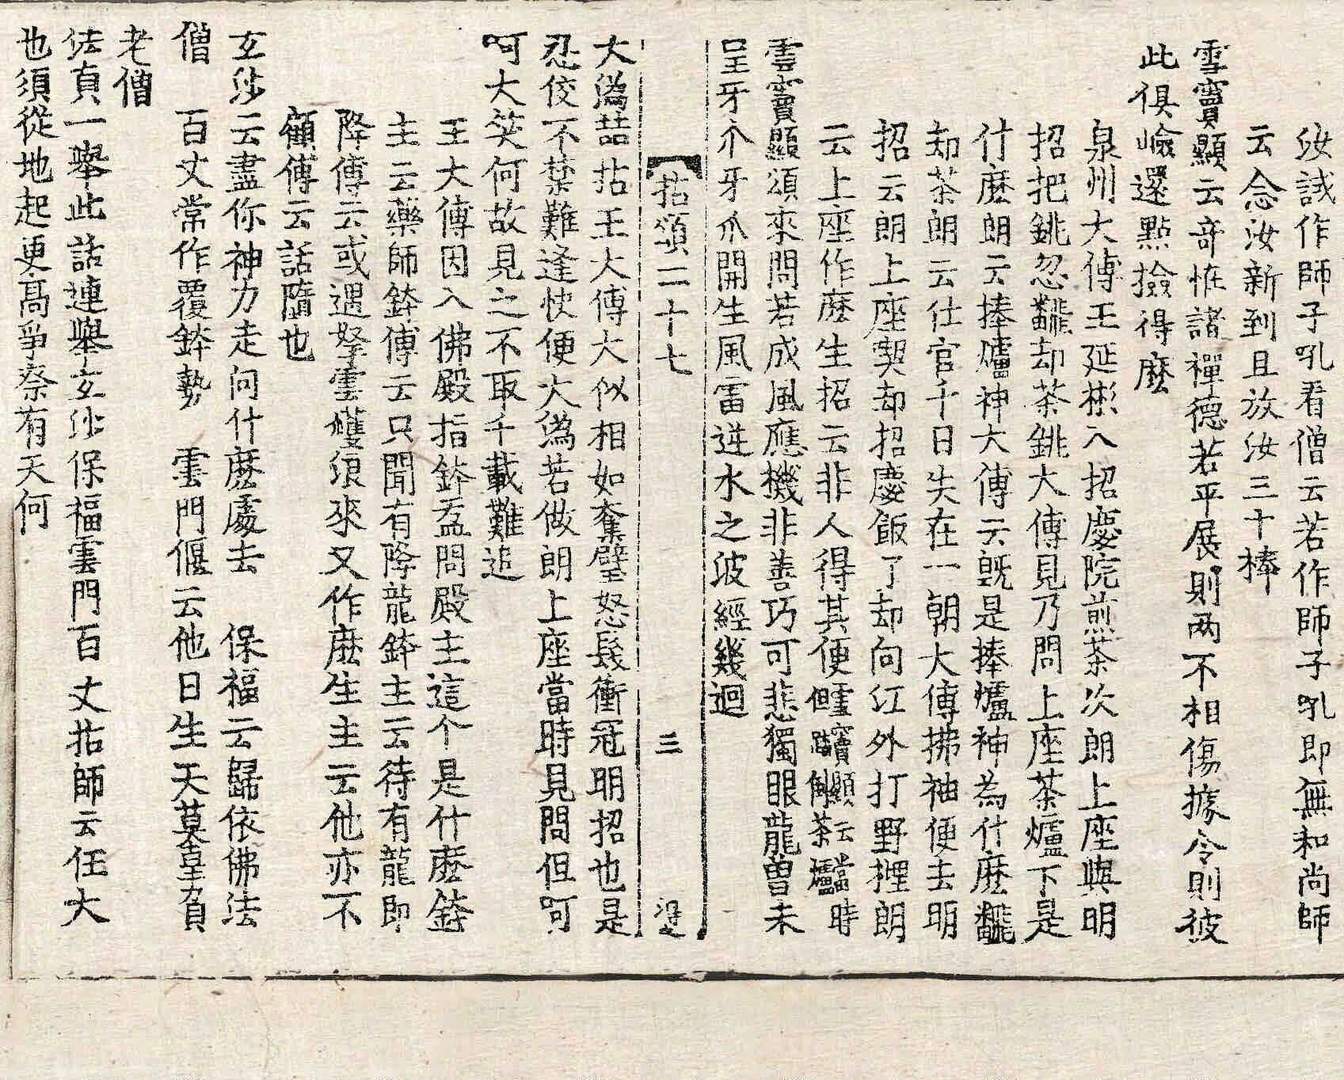 汝試作師子吼看僧云若作師子吼即無和尚師
云念汝新到且放汝三十棒
雪竇顯云竒恠諸禪德若平展則两不相傷據令則彼
此俱嶮還點撿得麽
泉州大傅王延彬入招慶院煎茶次朗上座與明
招把銚忽飜却茶銚大傅見乃問上座茶爐下是
什麽朗云捧爐神大傅云旣是捧爐神為什麽飜
却茶朗云仕官千日失在一朝大傅拂袖便去明
招云朗上座喫却招慶飯了却向江外打野榸朗
云上座作麽生招云非人得其便雪竇顯云當時但踏倒茶爐
雪竇顯頌來問若成風應機非善巧可悲獨眼龍曽未
呈牙爪牙爪開生風雷逆水之波經幾迴
拈頌二十七 三
大溈喆拈王大傅大似相如奪璧怒髮衝冠明招也是
忍俊不禁難逢快便大溈若做朗上座當時見問但呵
呵大笑何故見之不取千載難追
王大傅因入佛殿指鉢盂問殿主這个是什麽鉢
主云藥師鉢傅云只聞有降龍鉢主云待有龍即
降傅云或遇拏雲㸕浪來又作麽生主云他亦不
顧傅云話墮也
玄沙云盡你神力走向什麽處去 保福云歸依佛法
僧 百丈常作覆鉢勢 雲門偃云他日生天莫辜負
老僧
法眞一舉此話連舉玄沙保福雲門百丈拈師云任大
也須從地起更髙爭柰有天何